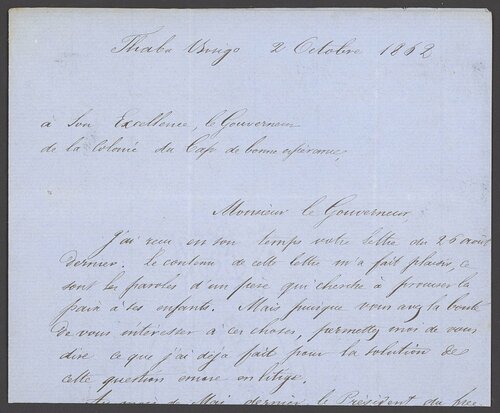 Thaba Bosigo 2 Octobre 1862
à Son Excellence, le Gouverneur
de la Colonie du Cap de bonne espérance,
Monsieur le Gouverneur,
J'ai reçu en son temps votre lettre du 26 août
dernier. Le contenu de cette lettre m'a fait plaisir, ce
sont les paroles d'un père qui cherche à procurer la
paix à ses enfants. Mais puisque vous avez la bonté
de vous intéresser à ces choses, permettez moi de vous
dire ce que j'ai deja fait pour la solution de
cette question encore en litige.
Au mois de Mai dernier le Président du free